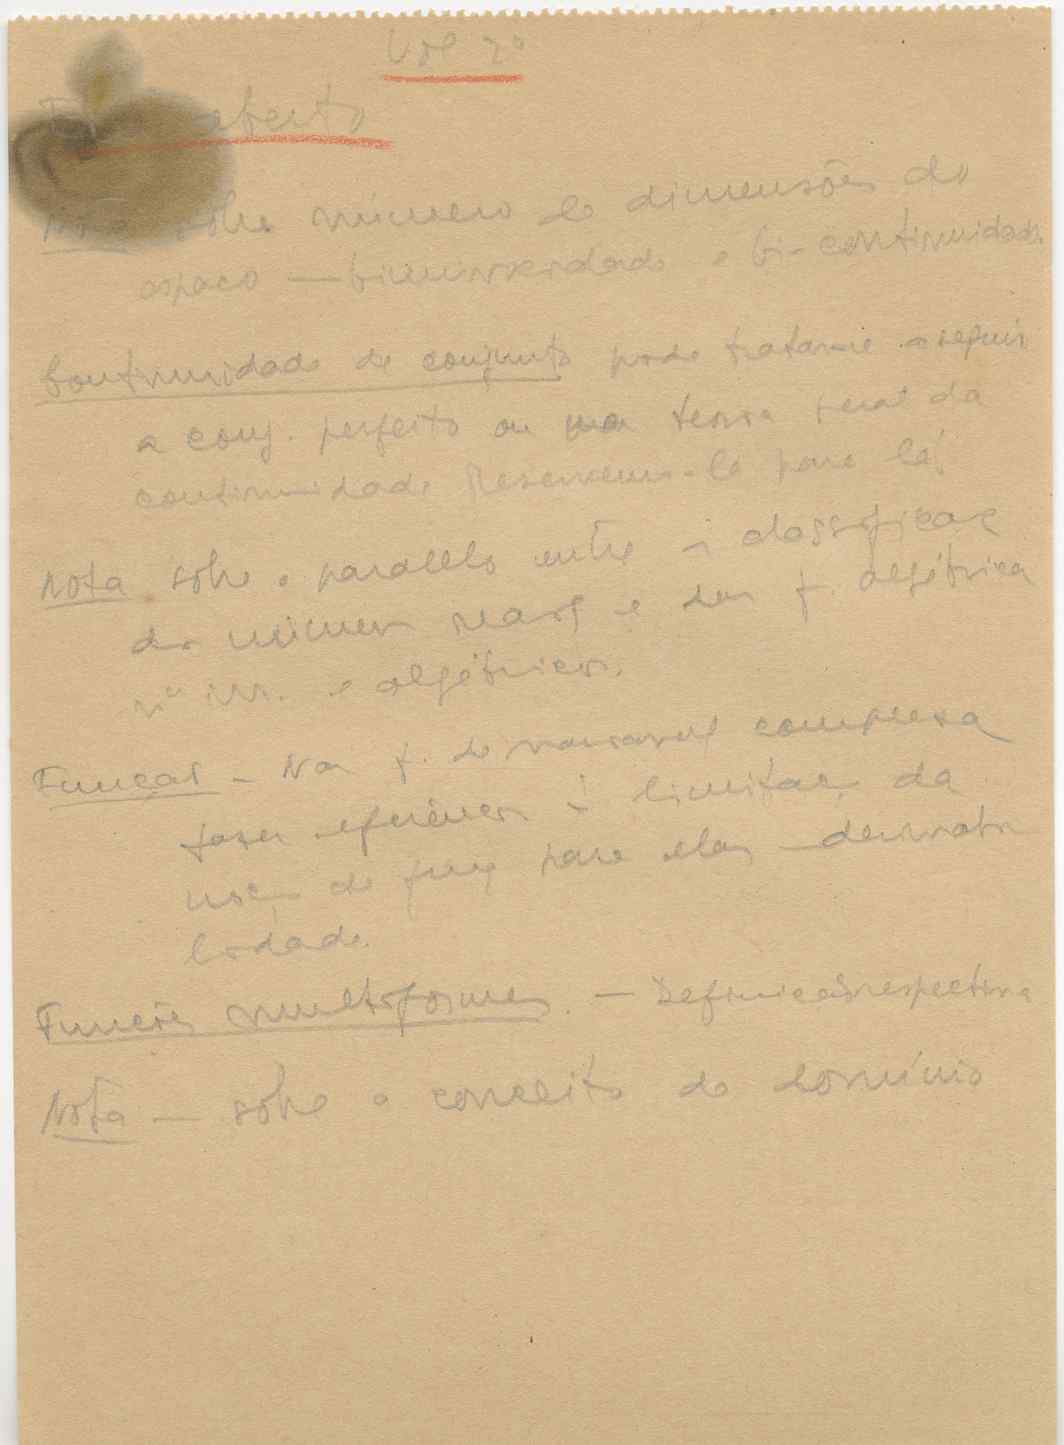 Vol 2º
aberto
Nota sobre número de dimensões do
espaço — biunivocidade e bi-continuidade
Continuidade de conjunto pode tratar-se a seguir
a conj. perfeito ou na teoria geral da
continuidade. Reservemo-lo para lá.
Nota sobre o paralelo entre a classificação
dos números reais e das f. algébrica
nº irr. e algébricos.
Função — Nas f. de variável complexa
fazer referência à limitação da
noção de função para elas — derivabi
lidade.
Funções multiformes — Definição respectiva
Nota — sobre o conceito de domínio